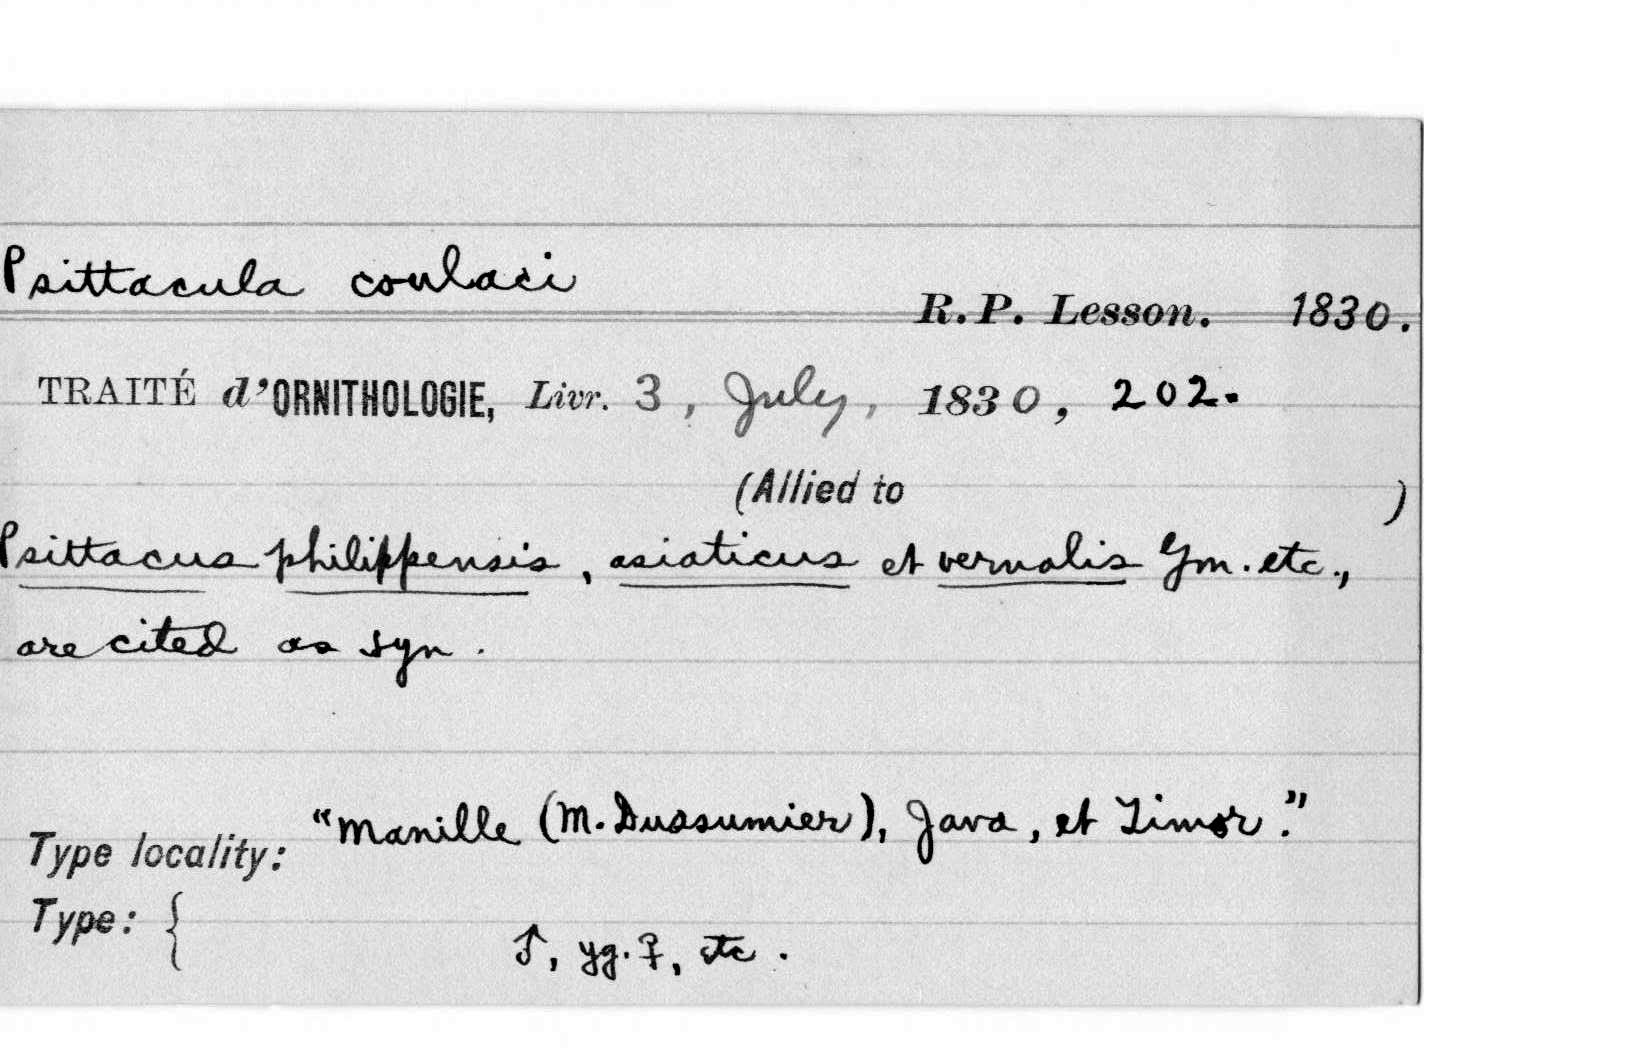 Psittacula coulaci
R. P. Lesson. 1830.
TRAITÉ d'ORNITHOLOGIE, Livr. 3, July, 1830, 202.
(Allied to )
Psittacus philippensis, asiaticus et vernalis Gm. etc.,
are cited as syn.
Type locality: "Manille (M. Dussumier), Java, et Timor."
Type: {
♂, yg. ♀, etc.